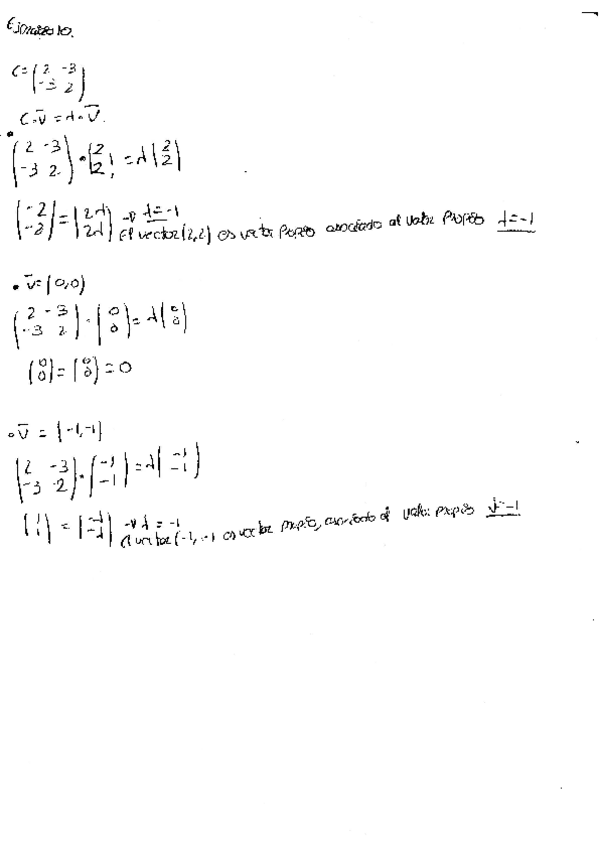 Ejercicio 10.
C = (2 -3
-3 2)
C·v̄ = λ·v̄.
• (2 -3
-3 2) · (2
2) = λ (2
2)
(-2
-2) = (2λ
2λ) → λ = -1
El vector (2,2) es vector propio asociado al valor propio λ = -1
• v̄ = (0,0)
(2 -3
-3 2) · (0
0) = λ (0
0)
(0
0) = (0
0) = 0
• v̄ = (-1,-1)
(2 -3
-3 2) · (-1
-1) = λ (-1
-1)
(1
1) = (-λ
-λ) → λ = -1
El vector (-1,-1 es vector propio, asociado al valor propio λ = -1